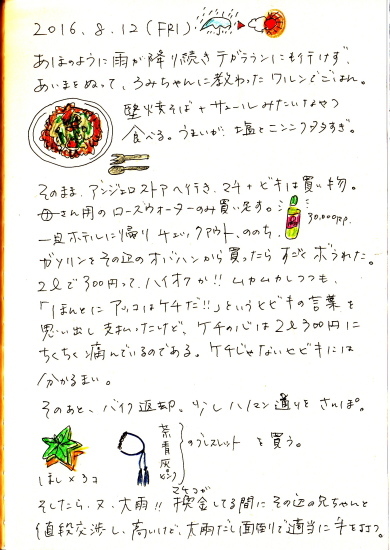 2016. 8. 12 (FRI)
あほのように雨が降り続きテガラランにも行けず、
あいまをぬって、ろみちゃんに教わったワルンでごはん。
堅焼そば+サユールみたいなやつ
食べる。うまいが、塩とニンニク多すぎ。
そのまま、アンジェロストアへ行き、マチ+ビキは買い物。
母さん用のローズウォーターのみ買い足す。
30,000Rp.
一旦ホテルに帰りチェックアウト、ののち、
ガソリンをその辺のオバハンから買ったらすごくボられた。
2ℓで300円って、ハイオクか!! ムカムカしつつも、
「ほんとにアッコはケチだ!!」というヒビキの言葉を
思い出し支払ったけど、ケチの心は2ℓ300円に
ちくちく痛んでいるのである。ケチじゃないヒビキには
分かるまい。
そのあと、バイク返却。少しハノマン通りをさんぽ。
茶
青
灰
ピンク
のブレスレット を買う。
ほし×3コ
マチコが
そしたら、又、大雨!! 換金してる間にその辺の兄ちゃんと
値段交渉し、高いけど、大雨だし面倒で適当に手を打つ。